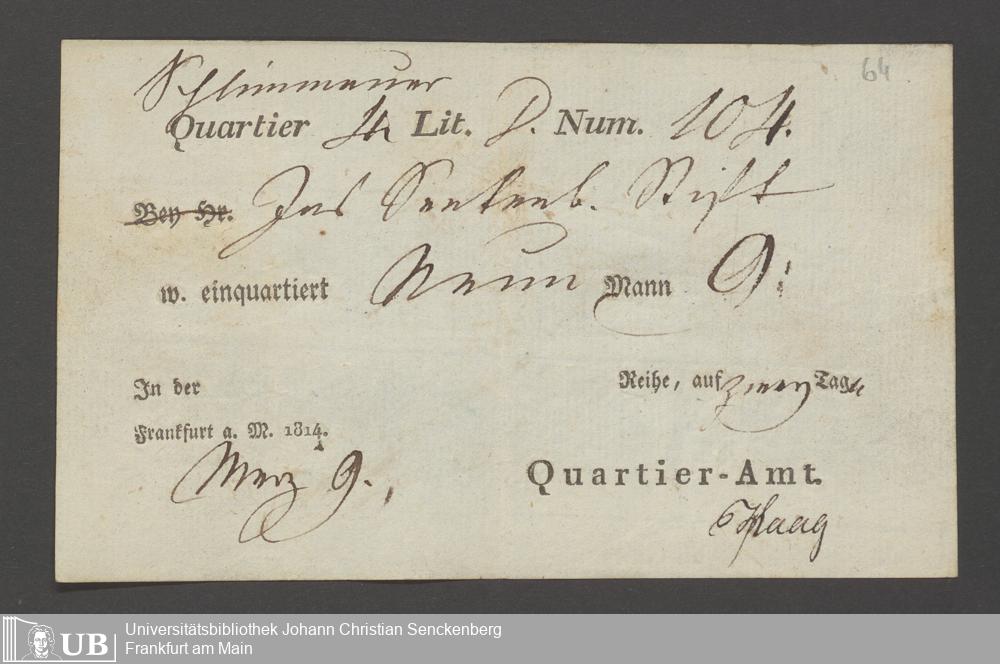 Schlimmauer
64
Quartier 4 Lit. D. Num. 104.
Bey Hr. Das Senkenb. Stift
w. einquartiert Neun Mann 9:
In der Reihe, auf zwey Tage
Frankfurt a. M. 1814.
Merz 9.
Quartier-Amt.
Haag
UB Universitätsbibliothek Johann Christian Senckenberg
Frankfurt am Main